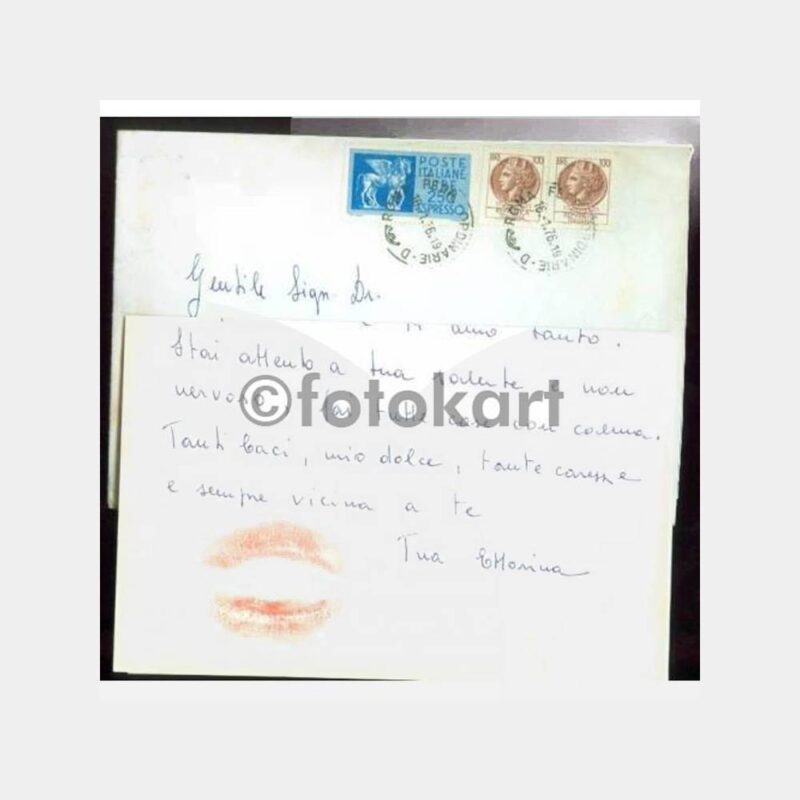 POSTE
ITALIANE
250
ESPRESSO
LIRE 100
LIRE 100
ROMA
16.1.76.19
ORDINARIE - D
ROMA
16.1.76.19
ORDINARIE - D
Gentile Sign. Dr.
ti amo tanto.
Stai attento a tua salute e non
nervoso, fai tutte cose con calma.
Tanti baci, mio dolce, tante carezze
e sempre vicina a te
Tua Ettorina
©fotokart